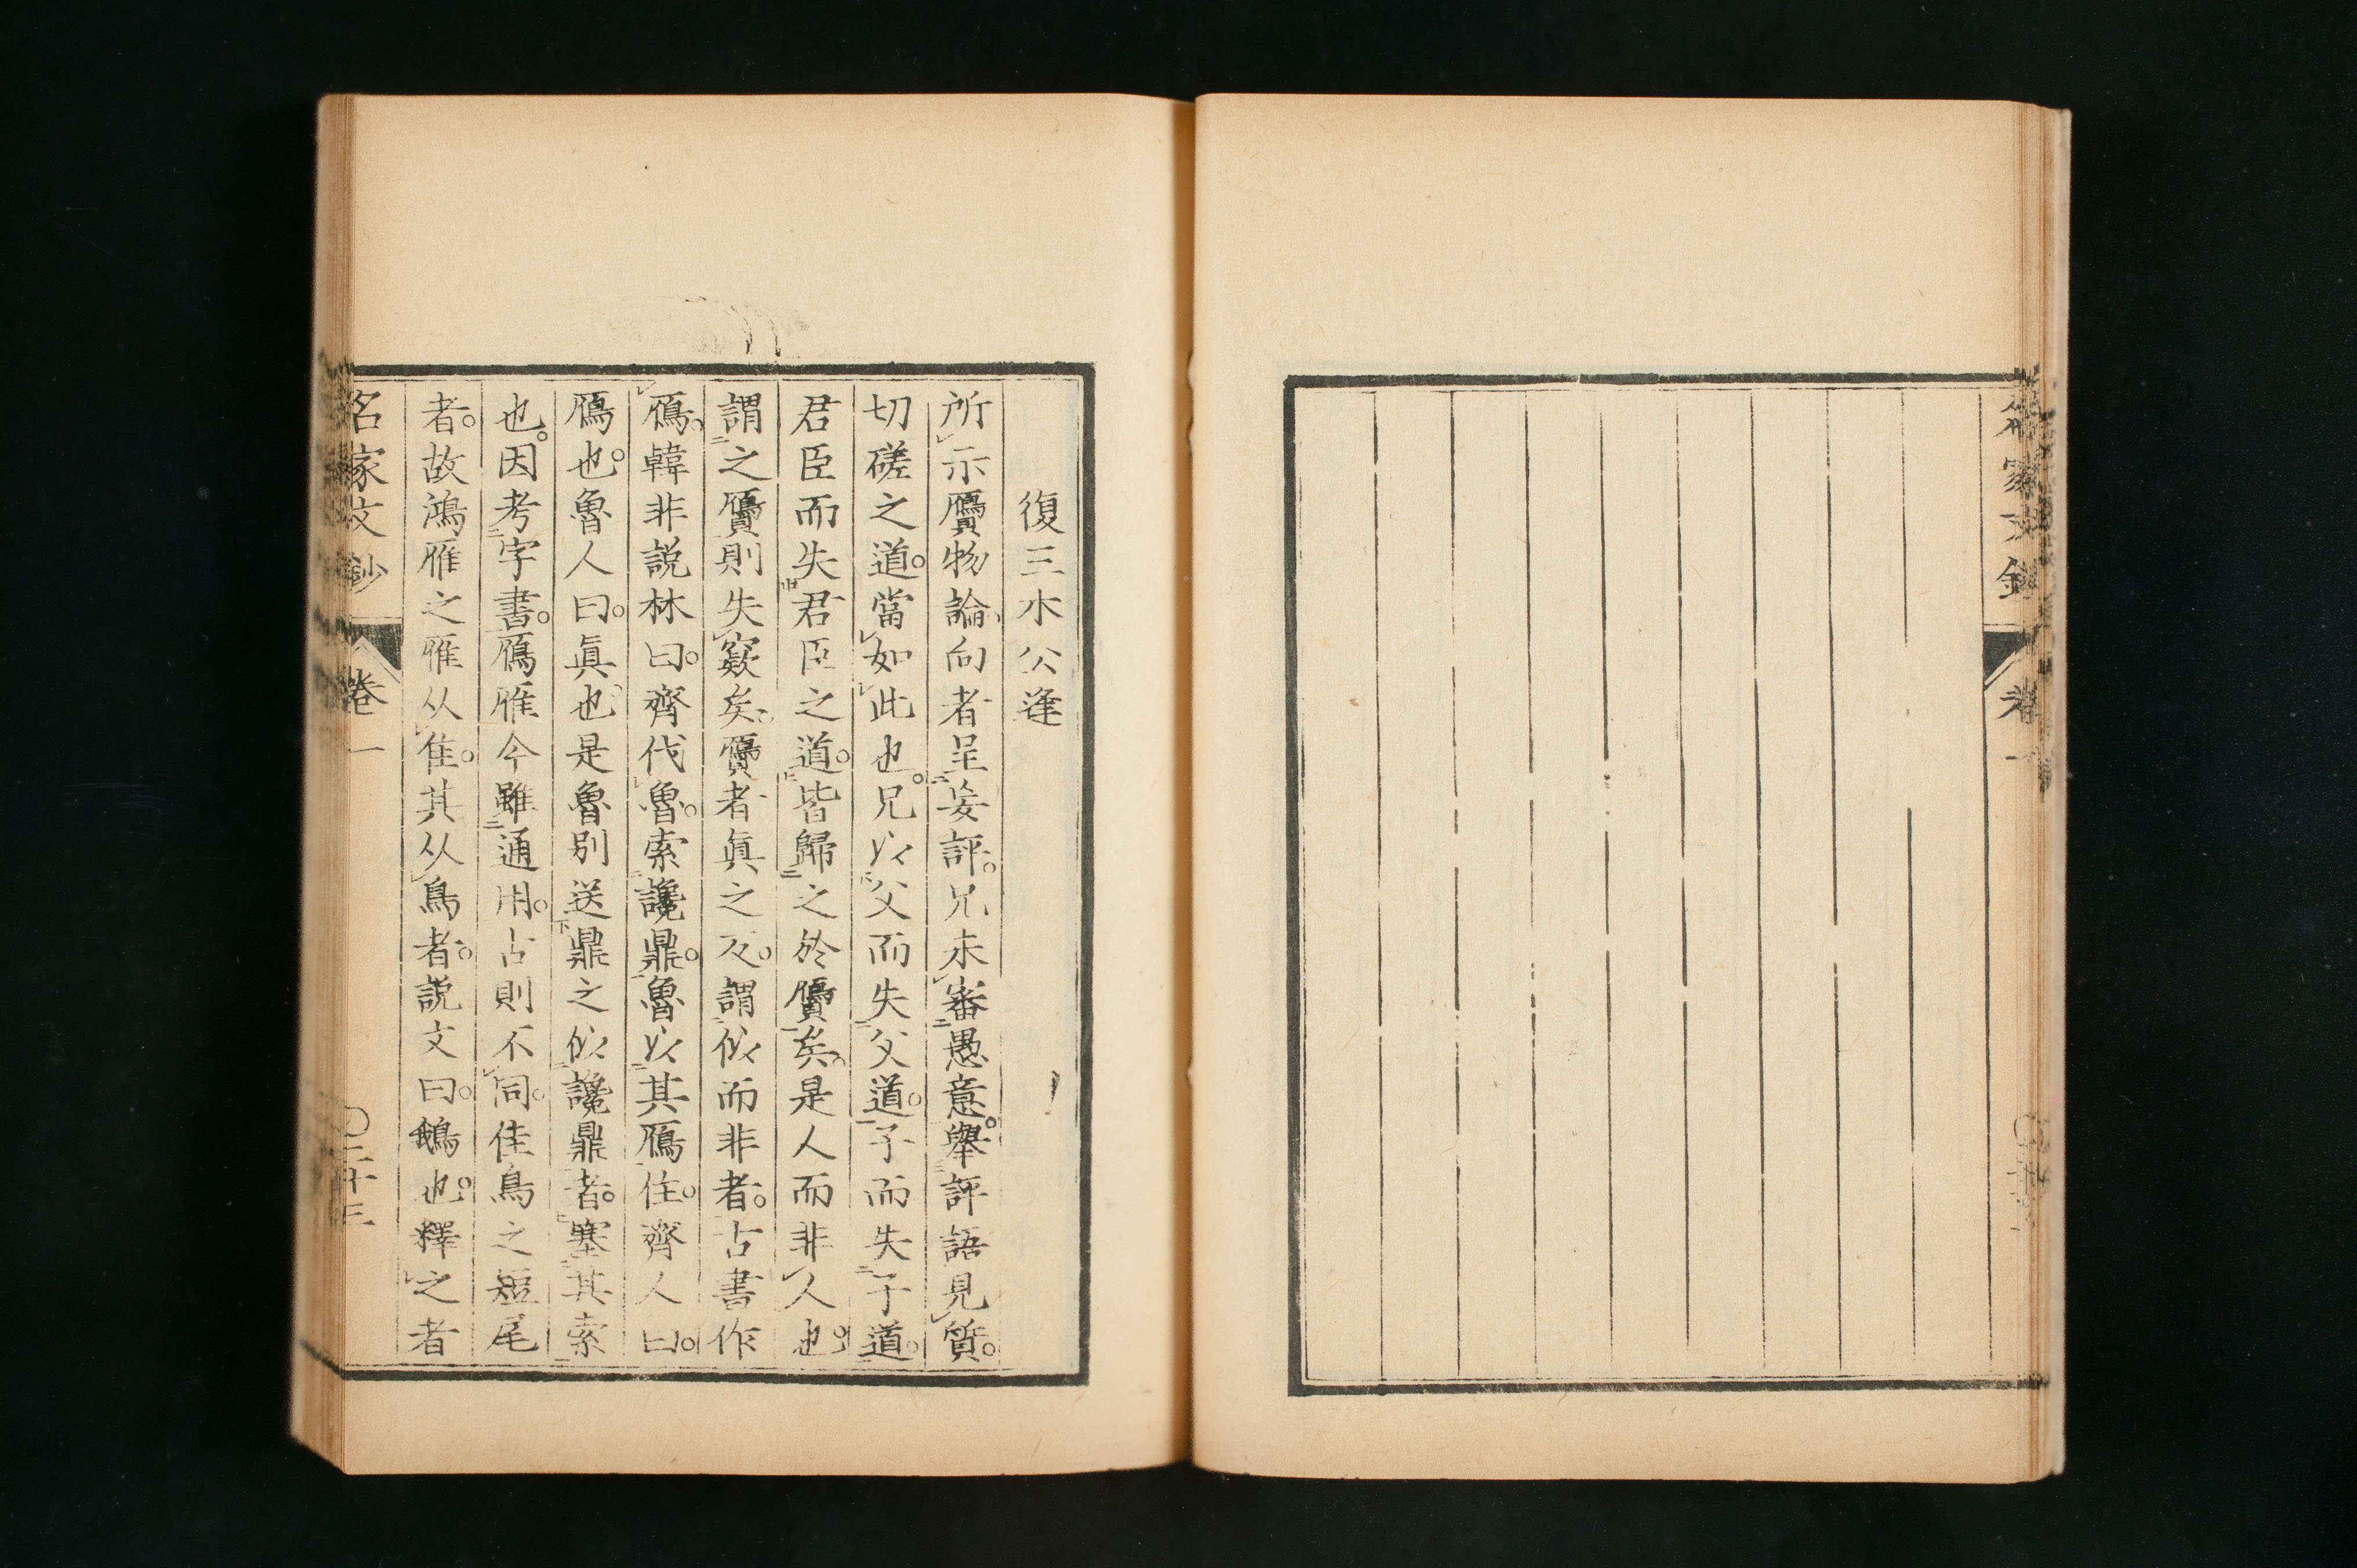 名家文鈔
卷一
復三木公逢
所示贗物論向者呈妄評兄未審愚意擧評語見質
切磋之道當如此也兄以父而失父道子而失子道
君臣而失君臣之道皆歸之於贗矣是人而非人也
謂之贗則失窾矣贗者眞之反謂似而非者古書作
鴈韓非說林曰齊伐魯索讒鼎魯以其鴈往齊人曰
鴈也魯人曰眞也是魯別送鼎之似讒鼎者塞其索
也因考字書鴈雁今雖通用古則不同隹鳥之短尾
者故鴻雁之雁从隹其从鳥者說文曰鵝也釋之者
名家文鈔
卷一
〇二十三